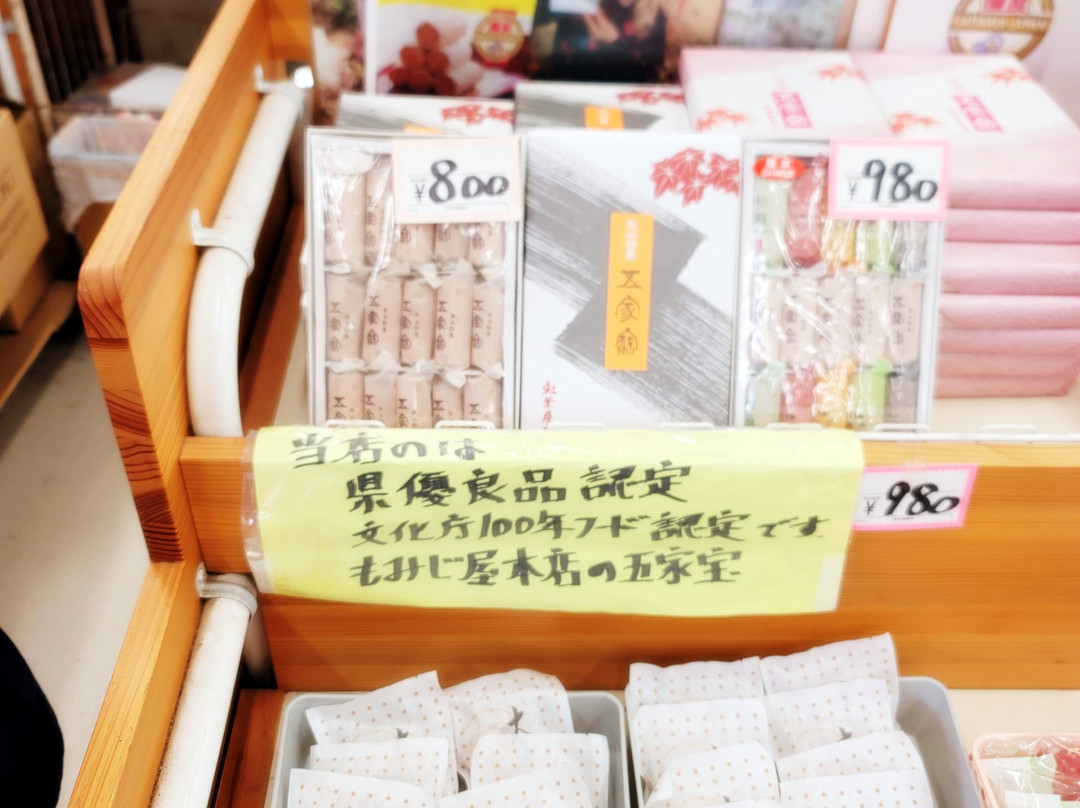 ¥800
¥980
五家寶
紅葉屋
当店のは
県優良品認定
文化庁100年フード認定です
もみじ屋本店の五家宝
¥980